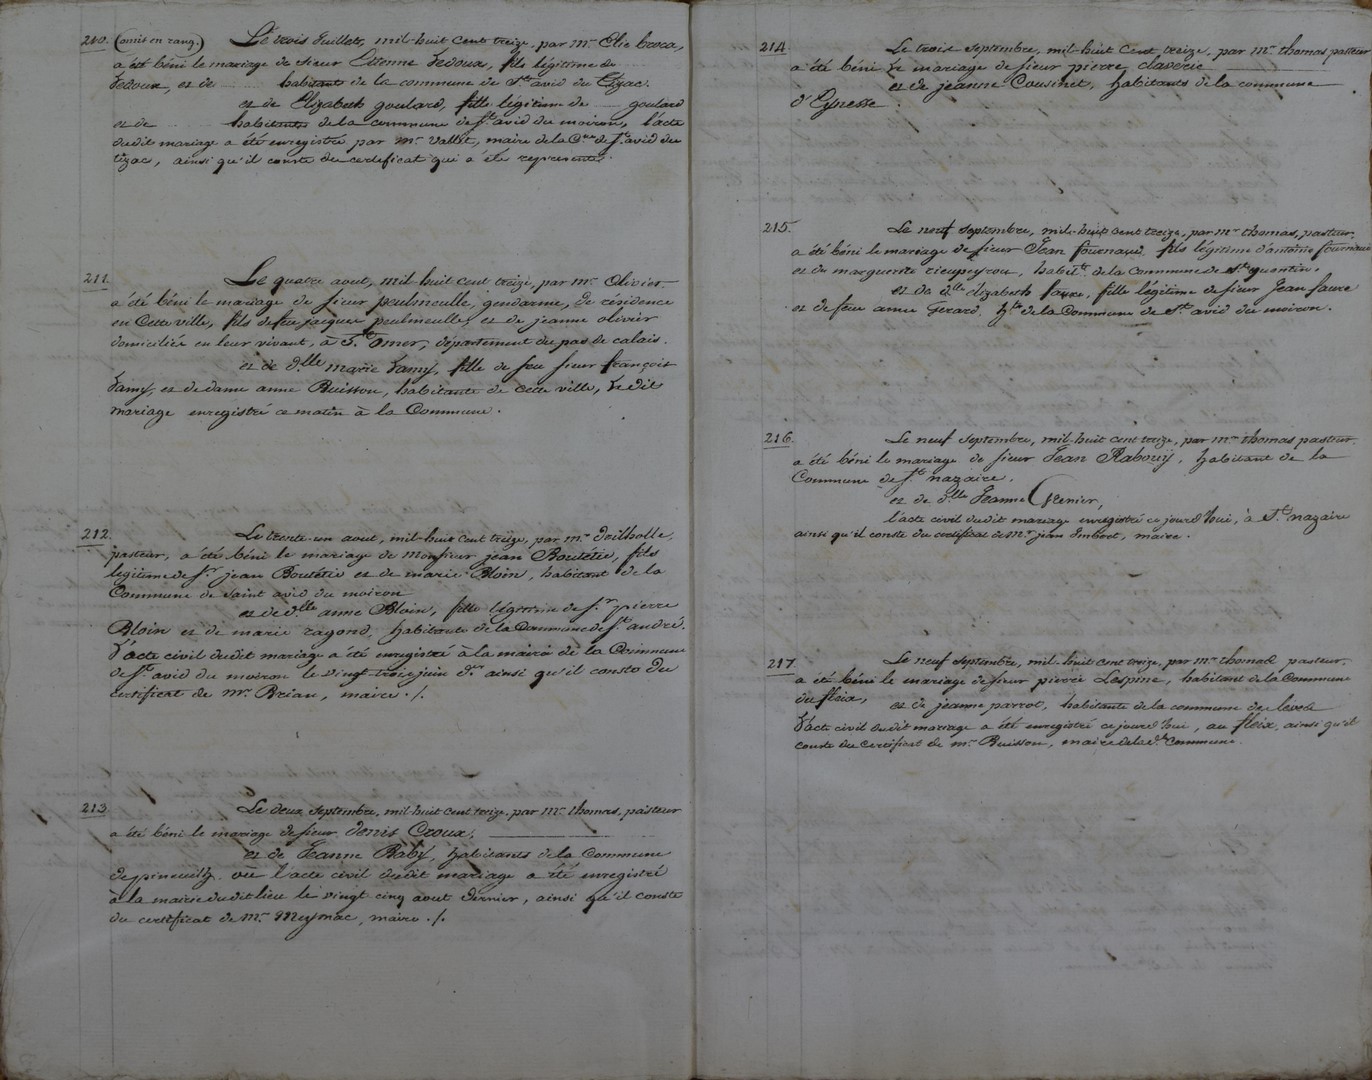 210. (omis en rang.) Le trois Juillet, mil-huit cent treize, par mr. Elie broca,
a été béni le mariage de sieur Etienne Ledoux, fils légitime de
Ledoux, et de habitant de la commune de St. avid du Tizac.
et de Elizabeth goulard, fille légitime de goulard
et de habitante de la commune de St. avid du moiron, l'acte
dudit mariage a été enregistré par mr. Vallet, maire de la Cne de St. avid du
tizac, ainsi qu'il conste du certificat qui a été représenté.
211. Le quatre aout, mil huit cent treize, par mr. Olivier
a été béni le mariage de sieur peulmeulle, gendarme, de résidence
en cette ville, fils de feu jacques peulmeulle, et de jeanne olivier
domiciliés en leur vivant, à St. Omer, département du pas de calais.
et de dlle marie Lamy, fille de feu sieur françois
Lamy, et de dame anne Buisson, habitante de cette ville, Le dit
mariage enregistré ce matin à la Commune.
212. Le trente-un aout, mil-huit cent treize, par mr. Drilholle,
pasteur, a été béni le mariage de Monsieur jean Boutétie, fils
légitime de Sr. jean Boutétie et de marie Bloin, habitant de la
Commune de Saint avid du moiron
et de dlle anne Bloin, fille légitime de Sr. pierre
Bloin et de marie ragond, habitante de la Commune de St. andré.
L'acte civil dudit mariage a été enregistré à la mairie de la Commune
de St. avid du moiron le vingt-trois juin dr. ainsi qu'il conste du
certificat de mr. Brian, maire ./.
213. Le deux septembre, mil-huit cent treize, par mr. thomas, pasteur
a été béni le mariage de sieur denis Croux,
et de Jeanne Baby, habitants de la Commune
de pineuilh. où l'acte civil dudit mariage a été enregistré
à la mairie dudit lieu le vingt cinq aout dernier, ainsi qu'il conste
du certificat de Mr. Meymac, maire ./.
214. Le trois septembre, mil-huit cent treize, par mr. thomas pasteur
a été béni Le mariage de sieur pierre claverie
et de jeanne Cousinet, habitants de la commune
d'Eynesse.
215. Le neuf septembre, mil-huit cent treize, par mr. thomas, pasteur.
a été béni le mariage de sieur Jean fournaud fils légitime d'antoine fournaud
et de marguerite rieupeyrou, habit.t de la Commune de St. quentin.
et de dlle élizabeth faure, fille légitime de sieur Jean faure
et de feue anne Gerard. hte de la Commune de St. avid du moiron.
216. Le neuf septembre, mil-huit cent treize, par mr. thomas pasteur.
a été béni le mariage de sieur Jean Rabouÿ, habitant de la
Commune de St. nazaire.
et de dlle Jeanne Grenier,
l'acte civil dudit mariage enregistré ce jourd'hui, à St. nazaire
ainsi qu'il conste du certificat de Mr. jean Imbert, maire.
217. Le neuf septembre, mil-huit cent treize, par mr. thomas pasteur.
a été béni le mariage de sieur pierre Lespine, habitant de la Commune
du fleix, et de jeanne parrot, habitante de la commune de
L'acte civil dudit mariage a été enregistré ce jourd'hui, au fleix, ainsi qu'il
conste du certificat de mr. Buisson, maire de la dte. commune.